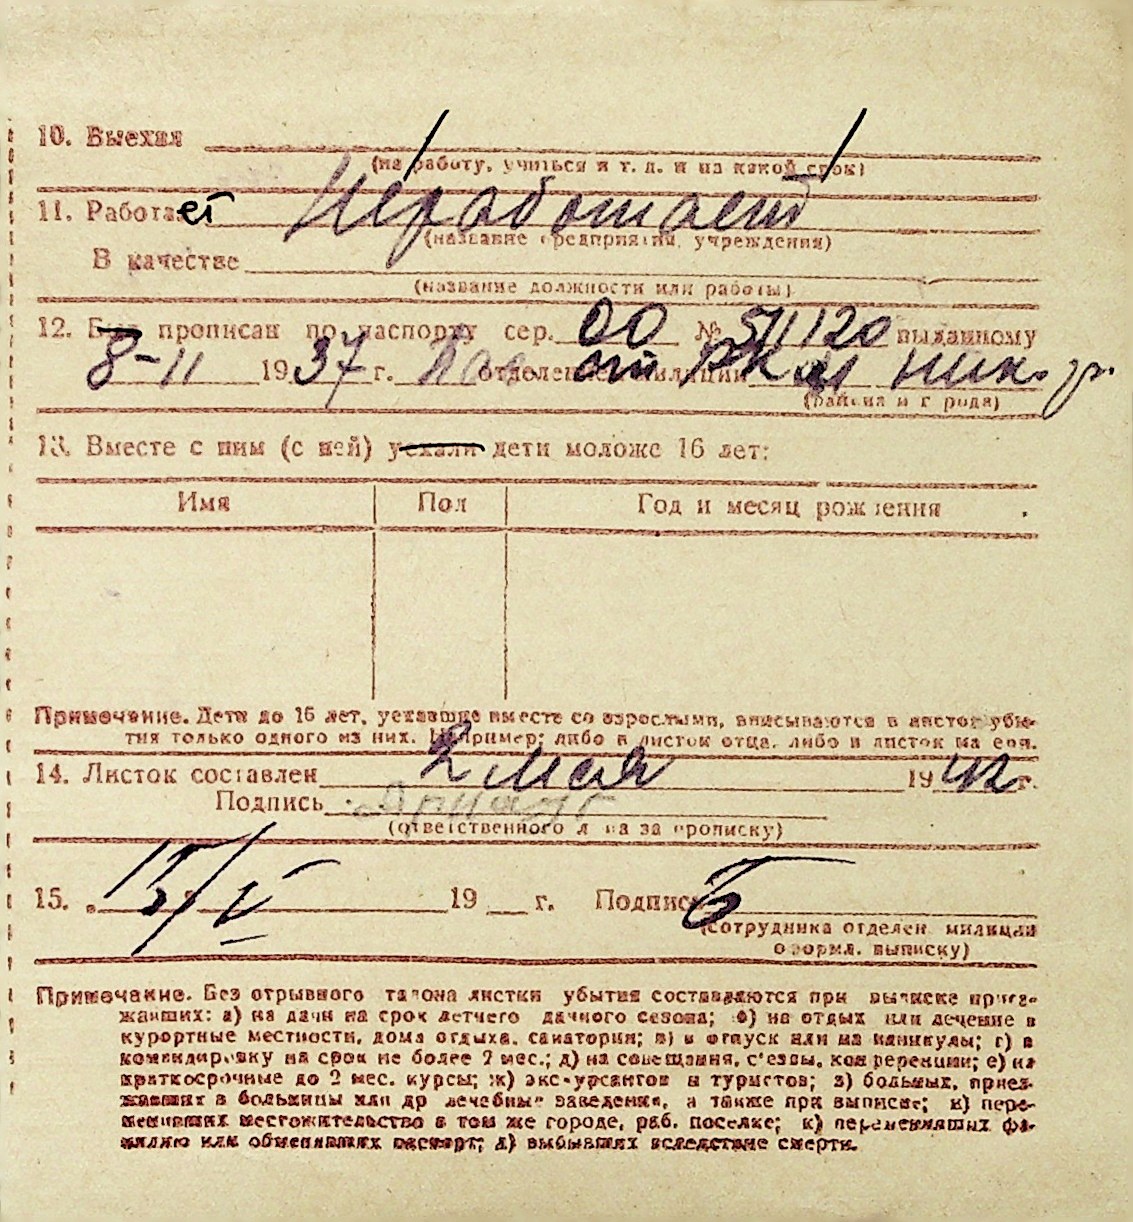 10. Выехал
(на работу, учиться и т. д. и на какой срок)
11. Работает Неработает
(название предприятия, учреждения)
В качестве
(название должности или работы)
12. Был прописан по паспорту сер. ОО № 511120 выданному
8-II 1937 г. отделением милиции РКМ Ник.
(района и города)
13. Вместе с ним (с ней) уехали дети моложе 16 лет:
Имя Пол Год и месяц рождения
Примечание. Дети до 16 лет, уехавшие вместе со взрослыми, вписываются в листок убы-
тия только одного из них. Например: либо в листок отца, либо в листок матери.
14. Листок составлен 2 мая 1942 г.
Подпись
(ответственного лица за прописку)
15. 15/V 19 г. Подпись Б
(сотрудника отделен. милиции
оформл. выписку)
Примечание. Без отрывного талона листки убытия составляются при выписке приез-
жавших: а) на дачи на срок летнего дачного сезона; б) на отдых или лечение в
курортные местности, дома отдыха, санатории; в) в отпуск или на каникулы; г) в
командировку на срок не более 2 мес.; д) на совещания, с'езды, конференции; е) на
краткосрочные до 2 мес. курсы; ж) экскурсантов и туристов; з) больных, приез-
жавших в больницы или др лечебные заведения, а также при выписке; и) пере-
менивших местожительство в том же городе, раб. поселке; к) переменивших фа-
милию или обменявших паспорт; л) выбывших вследствие смерти.